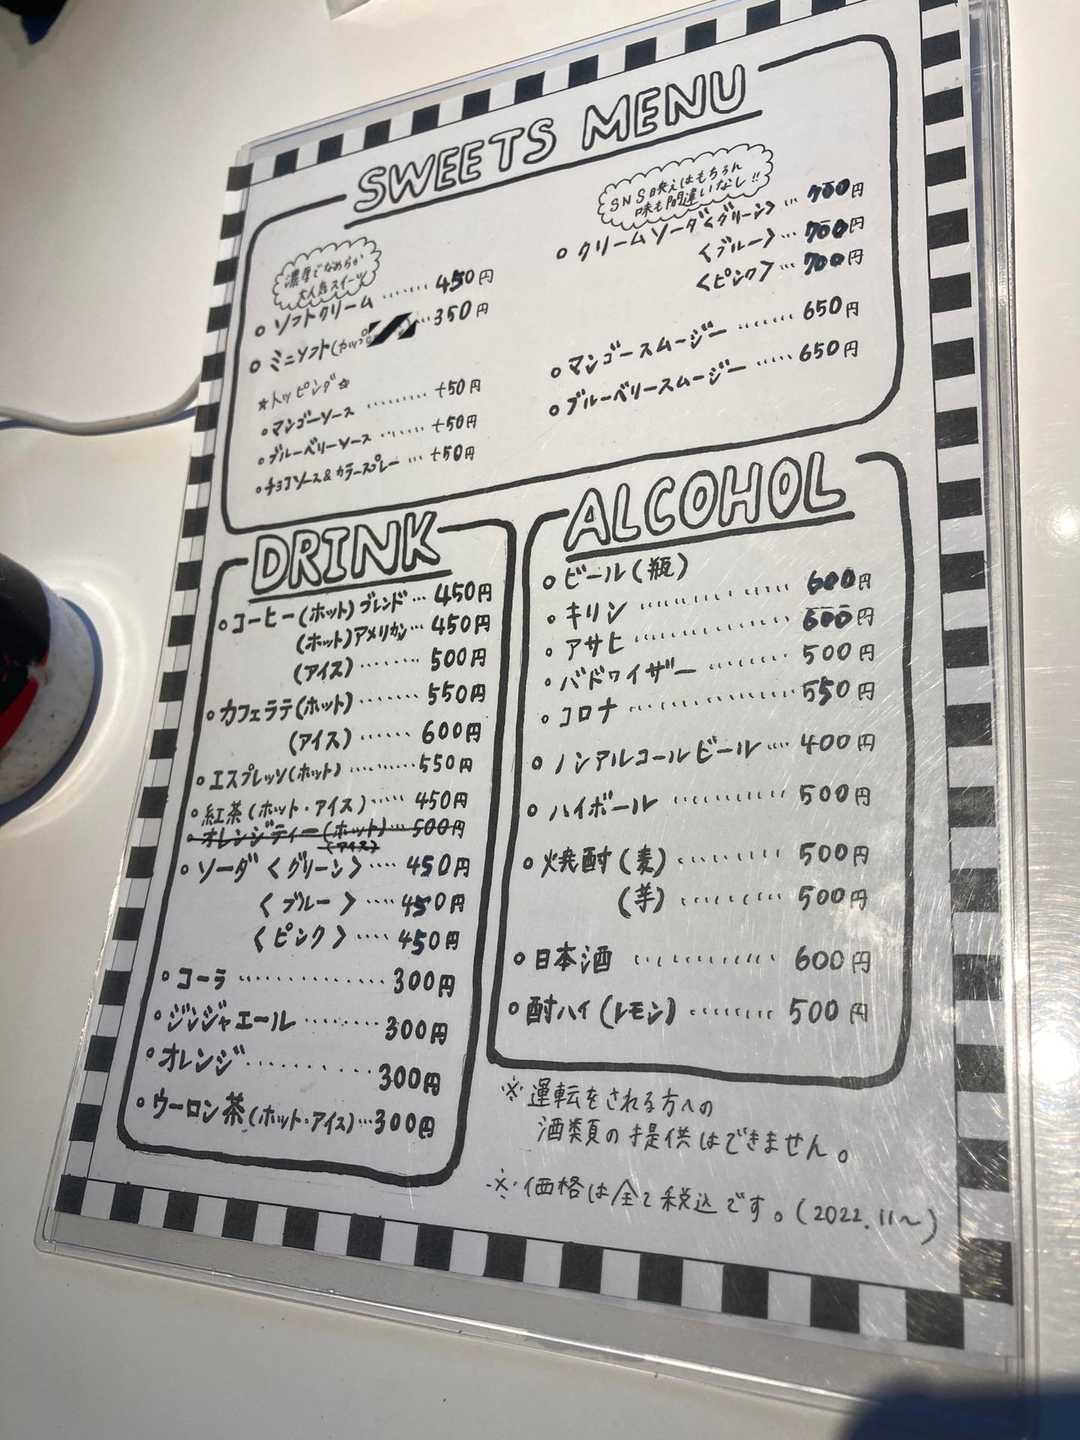 SWEETS MENU
濃厚でなめらか
大人気スイーツ
○ソフトクリーム……450円
○ミニソフト(カップ…350円
☆トッピング☆
○マンゴーソース………+50円
○ブルーベリーソース……+50円
○チョコソース&カラースプレー…+50円
SNS映えはもちろん
味も間違いなし!!
○クリームソーダ〈グリーン〉…700円
〈ブルー〉…700円
〈ピンク〉…700円
○マンゴースムージー……650円
○ブルーベリースムージー……650円
DRINK
○コーヒー(ホット)ブレンド…450円
(ホット)アメリカン…450円
(アイス)……500円
○カフェラテ(ホット)……550円
(アイス)……600円
○エスプレッソ(ホット)………550円
○紅茶(ホット・アイス)……450円
○オレンジティー(ホット)…500円
(アイス)
○ソーダ〈グリーン〉……450円
〈ブルー〉……450円
〈ピンク〉……450円
○コーラ…………300円
○ジンジャエール………300円
○オレンジ…………300円
○ウーロン茶(ホット・アイス)…300円
ALCOHOL
○ビール(瓶)
○キリン…………600円
○アサヒ…………600円
○バドワイザー………500円
○コロナ…………550円
○ノンアルコールビール…400円
○ハイボール…………500円
○焼酎(麦)…………500円
(芋)…………500円
○日本酒…………600円
○酎ハイ(レモン)………500円
※運転をされる方への
酒類の提供はできません。
※価格は全て税込です。(2022.11〜)